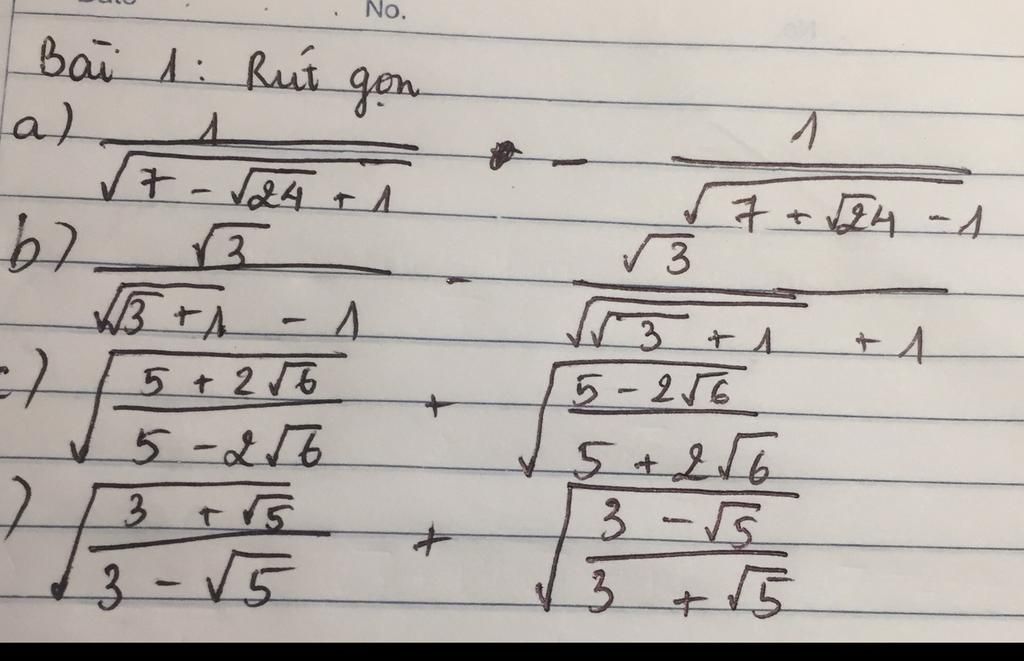 No.
Bài 1: Rút gọn
a) \frac{1}{\sqrt{7 - \sqrt{24} + 1}} - \frac{1}{\sqrt{7 + \sqrt{24}} - 1}
b) \frac{\sqrt{3}}{\sqrt{\sqrt{3} + 1} - 1} - \frac{\sqrt{3}}{\sqrt{\sqrt{3} + 1} + 1}
) \sqrt{\frac{5 + 2\sqrt{6}}{5 - 2\sqrt{6}}} + \sqrt{\frac{5 - 2\sqrt{6}}{5 + 2\sqrt{6}}}
) \sqrt{\frac{3 + \sqrt{5}}{3 - \sqrt{5}}} + \sqrt{\frac{3 - \sqrt{5}}{3 + \sqrt{5}}}